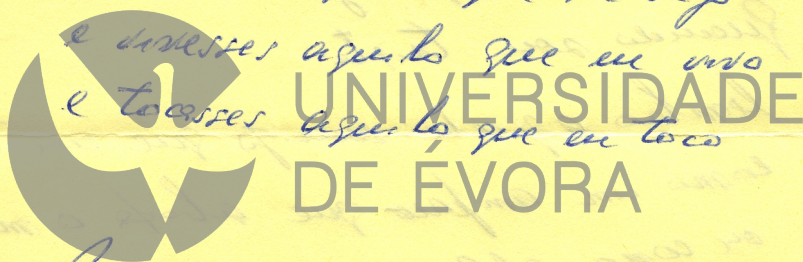 e vivesses aquilo que eu vivo
e tocasses aquilo que eu toco
UNIVERSIDADE
DE ÉVORA